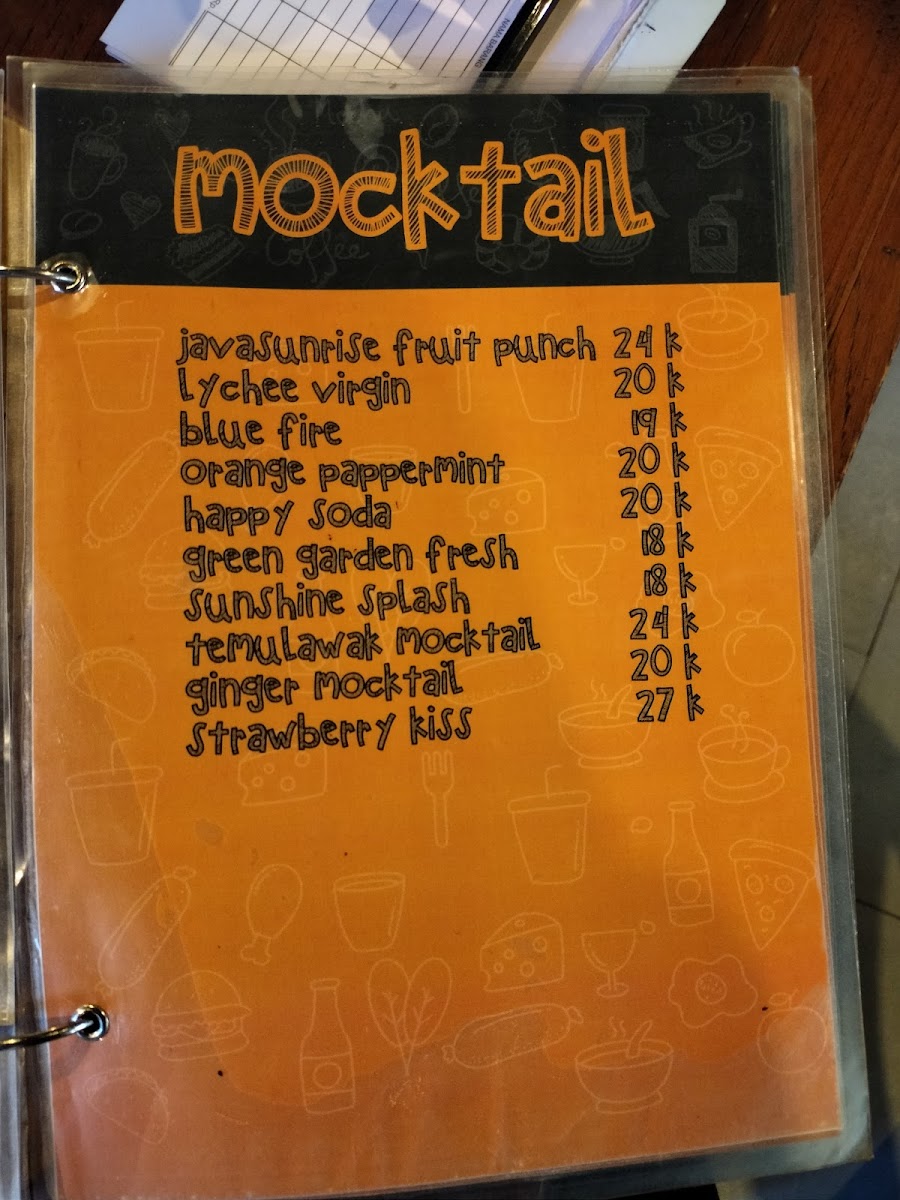 NAMA BARANG
mocktail
javasunrise fruit punch 24 k
lychee virgin 20 k
blue fire 19 k
orange pappermint 20 k
happy soda 20 k
green garden fresh 18 k
sunshine splash 18 k
temulawak mocktail 24 k
ginger mocktail 20 k
strawberry kiss 27 k